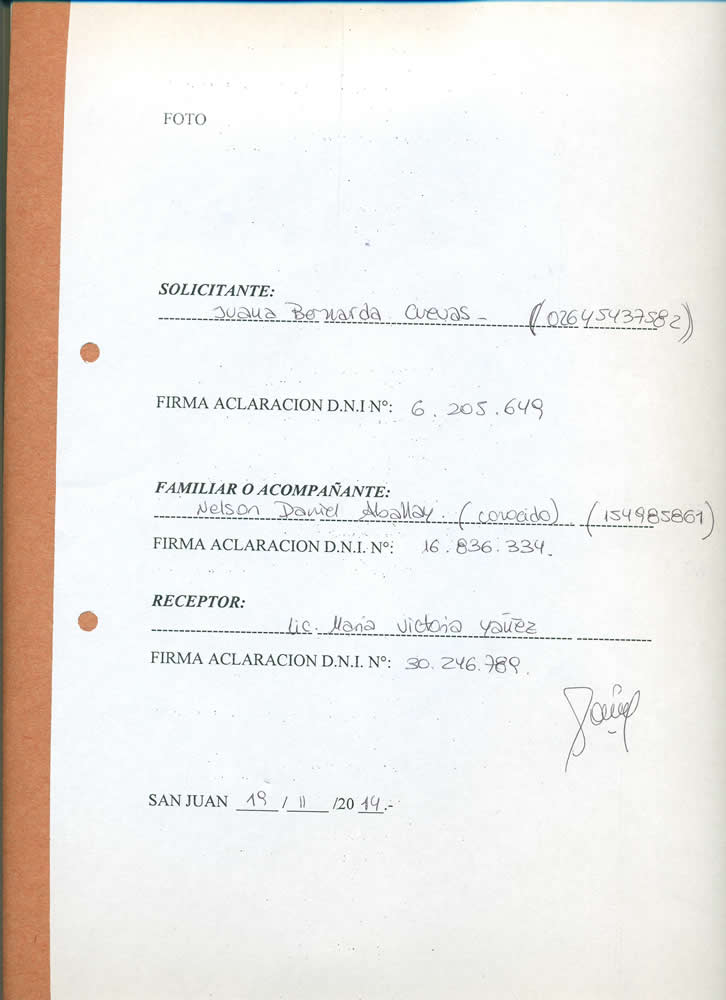 FOTO
SOLICITANTE:
Juana Bernarda Cuevas - (02645437582)
FIRMA ACLARACION D.N.I Nº: 6.205.649
FAMILIAR O ACOMPAÑANTE:
Nelson Daniel Aballay. (conocido). (154985861)
FIRMA ACLARACION D.N.I. Nº: 16.836.334.
RECEPTOR:
Lic. María Victoria Yañez
FIRMA ACLARACION D.N.I. Nº: 30.246.789.
SAN JUAN 19 / 11 /20 14.-